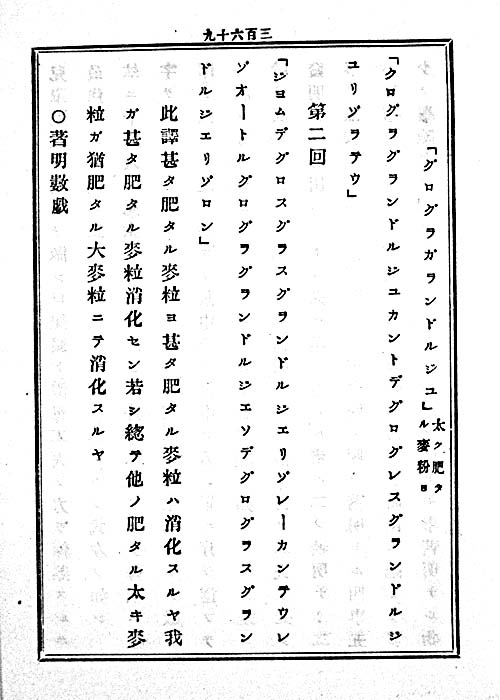 三百六十九
「グログラガランドルジユ」太ク肥タル麥粉ヨ
「クログラグランドルジユカントデグログレスグランドルジ
ユリゾラテウ」
第二回
「ジヨムデグロスグラスグランドルジエリゾレーカンテウレ
ゾオートルグログラグランドルジエソデグログラスグラン
ドルジエリゾロン」
此譯甚タ肥タル麥粒ヨ甚タ肥タル麥粒ハ消化スルヤ我
ガ甚タ肥タル麥粒消化セン若シ總テ他ノ肥タル太キ麥
粒ガ猶肥タル大麥粒ニテ消化スルヤ
〇著明數戯